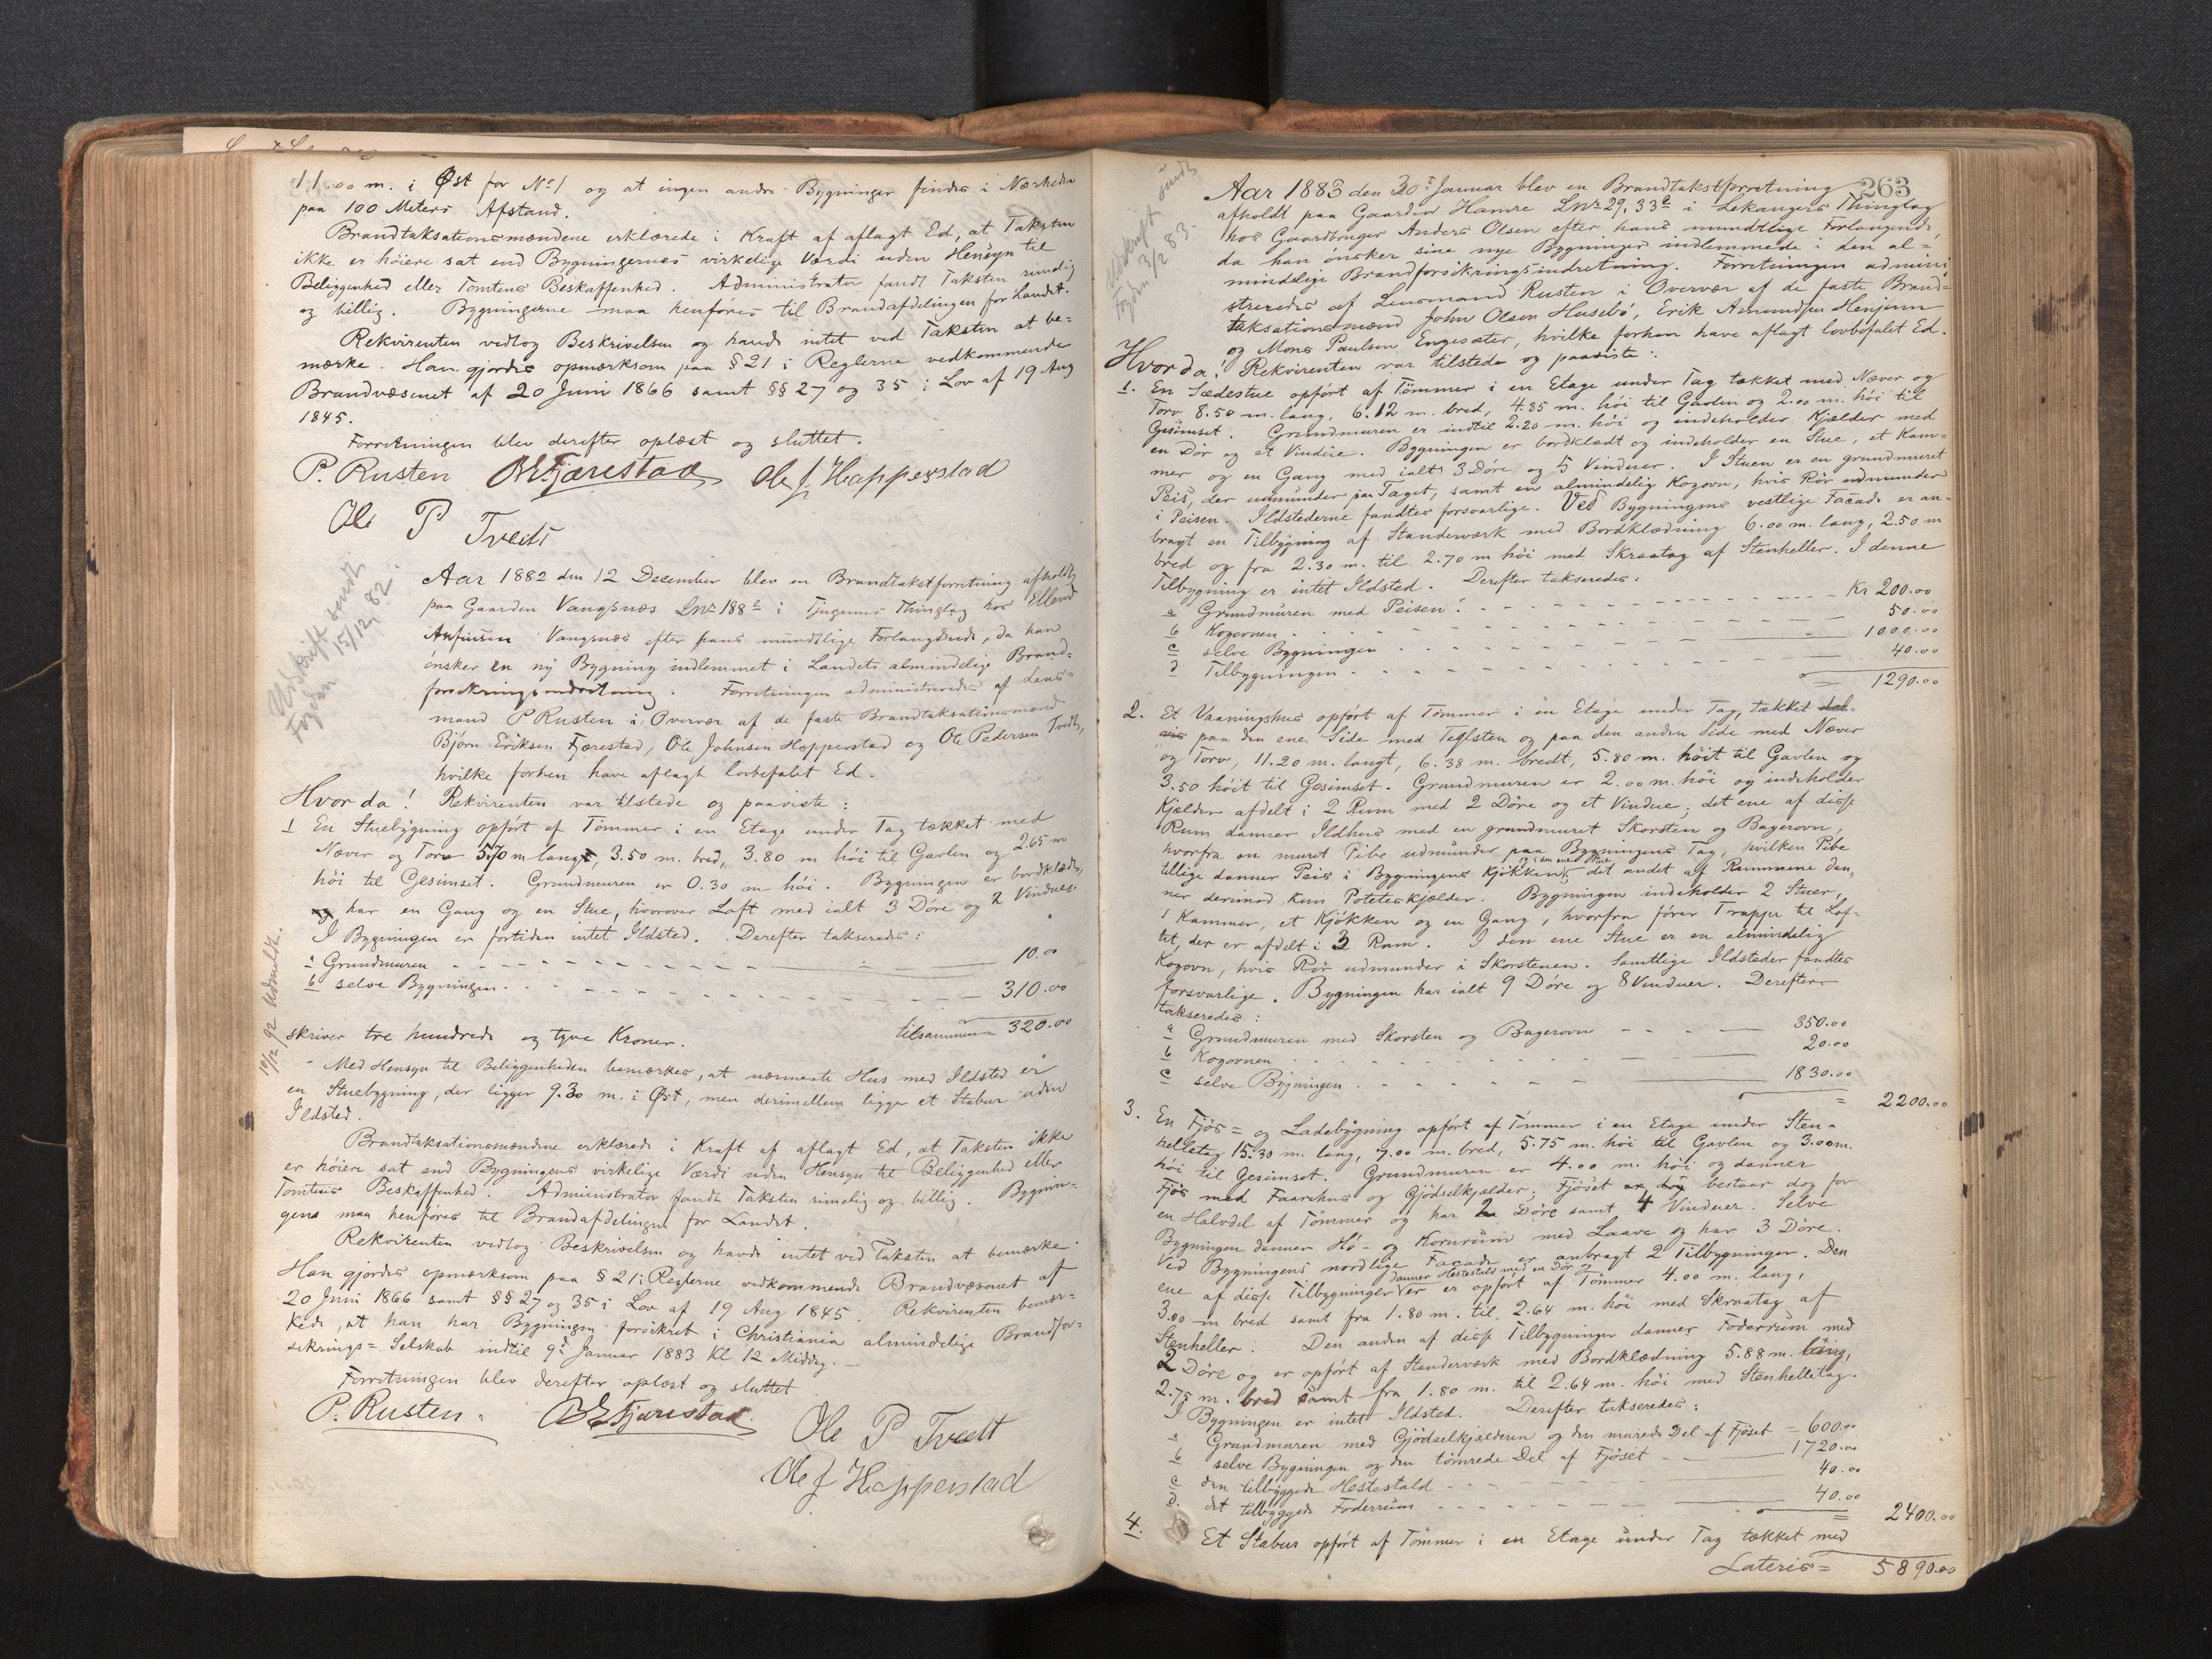 11.00 m. i Øst for No 1 og at ingen andre Bygninger findes i Nærheden
paa 100 Meters Afstand.
Brandtaksationsmændene erklærede i Kraft af aflagt Ed, at Taksten
ikke er høiere sat end Bygningernes virkelige Værdi uden Hensyn til
Beliggenhed eller Tomtens Beskaffenhed. Administrator fandt Taksten rimelig
og billig. Bygningerne maa henføres til Brandafdelingen for Landet.
Rekvirenten vedtog Beskrivelsen og havde intet ved Taksten at be=
mærke. Han gjordes opmærksom paa § 21 i Reglerne vedkommende
Brandvæsenet af 20 Juni 1866 samt §§ 27 og 35 i Lov af 19 Aug
1845.
Forretningen blev derefter oplæst og sluttet.
P. Rusten BEFjærestad Ole J Happerstad
Ole P Tvedt
Udskrift sendt
Fogden 15/12 82.
Aar 1882 den 12 December blev en Brandtakstforretning afholdt
paa Gaarden Vangsnæs Lnr 188 a i Tjugums Thinglag hos Ellend
Anfinsen Vangsnæs efter hans mundtlige Forlangende, da han
ønsker en ny Bygning indlemmet i Landets almindelige Brand=
forsikringsindretning. Forretningen administreredes af Lens=
mand P Rusten i Overvær af de faste Brandtaksationsmænd
Bjørn Eriksen Fjærestad, Ole Johnsen Hopperstad og Ole Pedersen Tvedt,
hvilke forhen have aflagt lovbefalet Ed.
Hvor da! Rekvirenten var tilstede og paaviste:
1 En Stuebygning opført af Tømmer i en Etage under Tag tækket med
Næver og Torv 5.70 m lang, 3.50 m. bred, 3.80 m høi til Gavlen og 2.65 m
høi til Gesimset. Grundmuren er 0.30 m høi. Bygningen er bordklædt,
og har en Gang og en Stue, hvorover Loft med ialt 3 Døre og 2 Vinduer.
I Bygningen er fortiden intet Ildsted. Derefter takseredes:
a Grundmuren 10.00
b selve Bygningen 310.00
tilsammen 320.00
skriver tre hundrede og tyve Kroner.
19/12 92 Udmeldt.
Med Hensyn til Beliggenheden bemærkes, at nærmeste Hus med Ildsted er
en Stuebygning, der ligger 9.30 m. i Øst, men derimellem ligger et Stabur uden
Ildsted.
Brandtaksationsmændene erklærede i Kraft af aflagt Ed, at Taksten ikke
er høiere sat end Bygningens virkelige Værdi uden Hensyn til Beliggenhed eller
Tomtens Beskaffenhed. Administrator fandt Taksten rimelig og billig. Bygnin=
gens maa henføres til Brandafdelingen for Landet.
Rekvirenten vedtog Beskrivelsen og havde intet ved Taksten at bemærke.
Han gjordes opmærksom paa § 21 i Reglerne vedkommende Brandvæsenet af
20 Juni 1866 samt §§ 27 og 35 i Lov af 19 Aug 1845. Rekvirenten bemær=
kede, at han har Bygningen forsikret i Christiania almindelige Brandfor=
sikrings=Selskab indtil 9de Januar 1883 Kl 12 Middag.
Forretningen blev derefter oplæst og sluttet
P. Rusten. BEFjærestad. Ole P Tvedt
Ole J Happerstad
263
Udskrift sendt
Fogden 3/2 83.
Aar 1883 den 30te Januar blev en Brandtakstforretning
afholdt paa Gaarden Hamre Lnr 29, 33 a i Lekangers Thinglag
hos Gaardbruger Anders Olsen efter hans mundtlige Forlangende,
da han ønsker sine nye Bygninger indlemmede i den al=
mindelige Brandforsikringsindretning. Forretningen admini
streredes af Lensmand Rusten i Overvær af de faste Brand=
taksationsmænd John Olsen Husebø, Erik Amundsen Henjum
og Mons Paulsen Engesæter, hvilke forhen have aflagt lovbefalet Ed.
Hvor da! Rekvirenten var tilstede og paaviste:
1. En Sædestue opført af Tømmer i en Etage under Tag tækket med Næver og
Torv 8.50 m. lang, 6.12 m. bred, 4.35 m. høi til Gavlen og 2.00 m. høi til
Gesimset. Grundmuren er indtil 2.20 m. høi og indeholder Kjælder med
en Dør og et Vindue. Bygningen er bordklædt og indeholder en Stue, et Kam=
mer og en Gang med ialt 3 Døre og 5 Vinduer. I Stuen er en grundmuret
Peis, der udmunder paa Taget, samt en almindelig Kogovn, hvis Rør udmunder
i Peisen. Ildstederne fandtes forsvarlige. Ved Bygningens vestlige Facade er an=
bragt en Tilbygning af Standerværk med Bordklædning 6.00 m. lang, 2.50 m
bred og fra 2.30 m. til 2.70 m høi med Skraatag af Stenheller. I denne
Tilbygning er intet Ildsted. Derefter takseredes:
a Grundmuren med Peisen Kr 200.00
b Kogovnen 50.00
c selve Bygningen 1000.00
d Tilbygningen 40.00
= 1290.00
2. Et Vaaningshus opført af Tømmer i en Etage under Tag, tækket del=
vis paa den ene Side med Teglsten og paa den anden Side med Næver
og Torv, 11.20 m. langt, 6.38 m. bredt, 5.80 m. høit til Gavlen og
3.50 høit til Gesimset. Grundmuren er 2.00 m. høi og indeholder
Kjælder afdelt i 2 Rum med 2 Døre og et Vindue; det ene af disse
Rum danner Ildhus med en grundmuret Skorsten og Bagerovn,
hvorfra en muret Pibe udmunder paa Bygningens Tag, hvilken Pibe
tillige danner Peis i Bygningens Kjøkken og i den ene Stue; det andet af Rummene dan=
ner derimod kun Poteteskjælder. Bygningen indeholder 2 Stuer,
1 Kammer, et Kjøkken og en Gang, hvorfra fører Trappe til Lof=
tet, der er afdelt i 3 Rum. I den ene Stue er en almindelig
Kogovn, hvis Rør udmunder i Skorstenen. Samtlige Ildsteder fandtes
forsvarlige. Bygningen har ialt 9 Døre og 8 Vinduer. Derefter
takseredes:
a Grundmuren med Skorsten og Bagerovn 350.00
b Kogovnen 20.00
c selve Bygningen 1830.00
= 2200.00
3. En Fjøs= og Ladebygning opført af Tømmer i en Etage under Sten=
helletag 15.30 m. lang, 7.00 m. bred, 5.75 m. høi til Gavlen og 3.00 m.
høi til Gesimset. Grundmuren er 4.00 m. høi og danner
Fjøs med Faarehus og Gjødselkjælder; Fjøset bestaar dog for
en Halvdel af Tømmer og har 2 Døre samt 4 Vinduer. Selve
Bygningen danner Hø= og Kornrum med Laave og har 3 Døre.
Ved Bygningens nordlige Facade er anbragt 2 Tilbygninger. Den
ene af disse Tilbygninger danner Hestestald med en Dør og er opført af Tømmer 4.00 m. lang,
3.00 m bred samt fra 1.80 m. til 2.64 m. høi med Skraatag af
Stenheller. Den anden af disse Tilbygninger danner Foderrum med
2 Døre og er opført af Standerværk med Bordklædning 5.88 m. lang,
2.75 m. bred samt fra 1.80 m. til 2.64 m. høi med Stenhelletag.
I Bygningen er intet Ildsted. Derefter takseredes:
a Grundmuren med Gjødselkjælderen og den murede Del af Fjøset = 600.00
b selve Bygningen og den tømrede Del af Fjøset 1720.00
c den tilbyggede Hestestald 40.00
d. det tilbyggede Foderrum 40.00
= 2400.00
4. Et Stabur opført af Tømmer i en Etage under Tag tækket med
Lateris = 5890.00